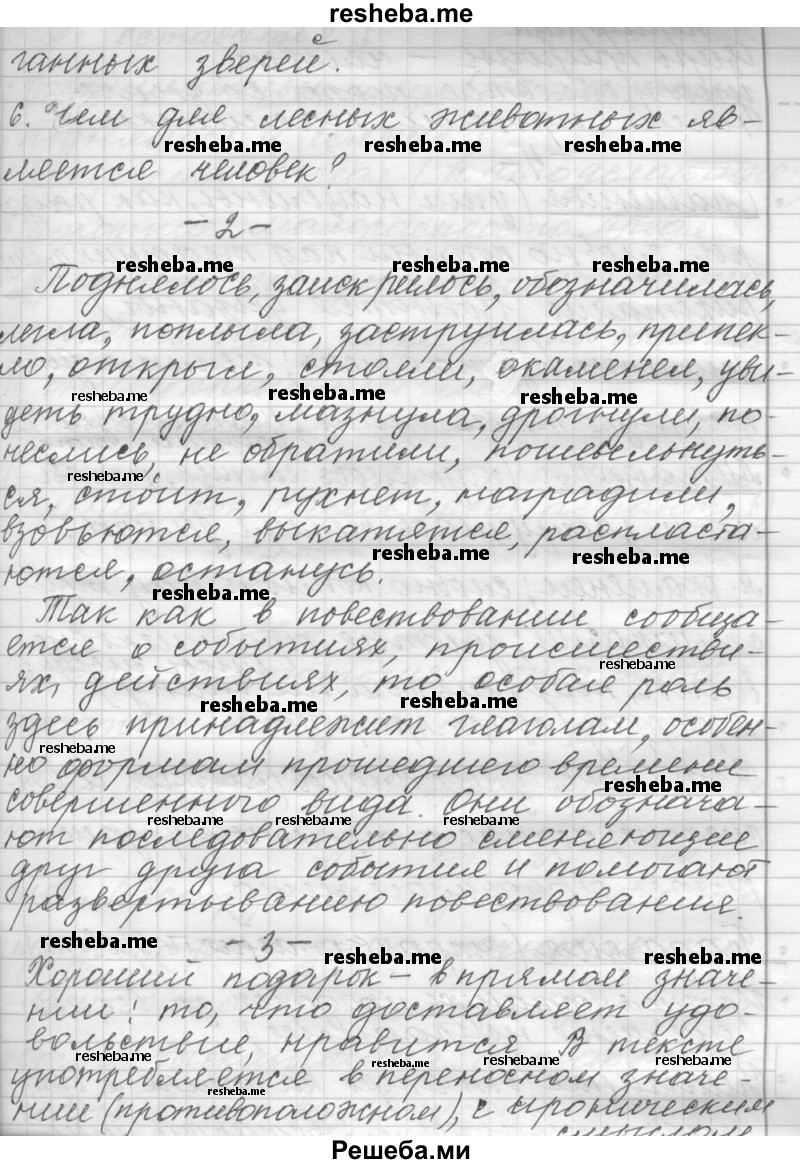 resheba.me
ганных зверей.
6. Чем для лесных животных яв-
resheba.me resheba.me resheba.me
ляется человек?
-2-
resheba.me resheba.me resheba.me
Поднялось, заискрилось, обозначилась,
легла, поплыла, заструилась, припек-
ло, открыл, стояли, окаменел, уви-
resheba.me resheba.me resheba.me
деть трудно, мазнула, дрогнули, по-
неслись, не обратили, пошевельнуть-
resheba.me
ся, стоит, рухнет, наградили,
взовьются, выкатятся, распласта-
resheba.me resheba.me
ются, останусь.
resheba.me
Так как в повествовании сообща-
ется о событиях, происшестви-
resheba.me
ях, действиях, то особая роль
resheba.me resheba.me
здесь принадлежит глаголам, особен-
resheba.me
но формам прошедшего времени
resheba.me
совершенного вида. Они обознача-
resheba.me resheba.me resheba.me
ют последовательно сменяющие
друг друга события и помогают
развертыванию повествования.
resheba.me -3-
resheba.me resheba.me
Хороший подарок – в прямом значе-
нии: то, что доставляет удо-
вольствие, нравится. В тексте
resheba.me resheba.me resheba.me resheba.me
употребляется в переносном значе-
resheba.me
нии (противоположном), с ироническим
смыслом
Решеба.ми